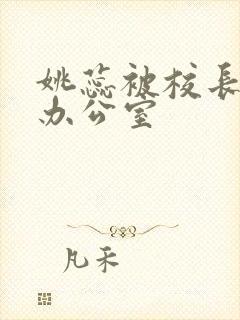 姚蕊被校長
办公室
凡禾